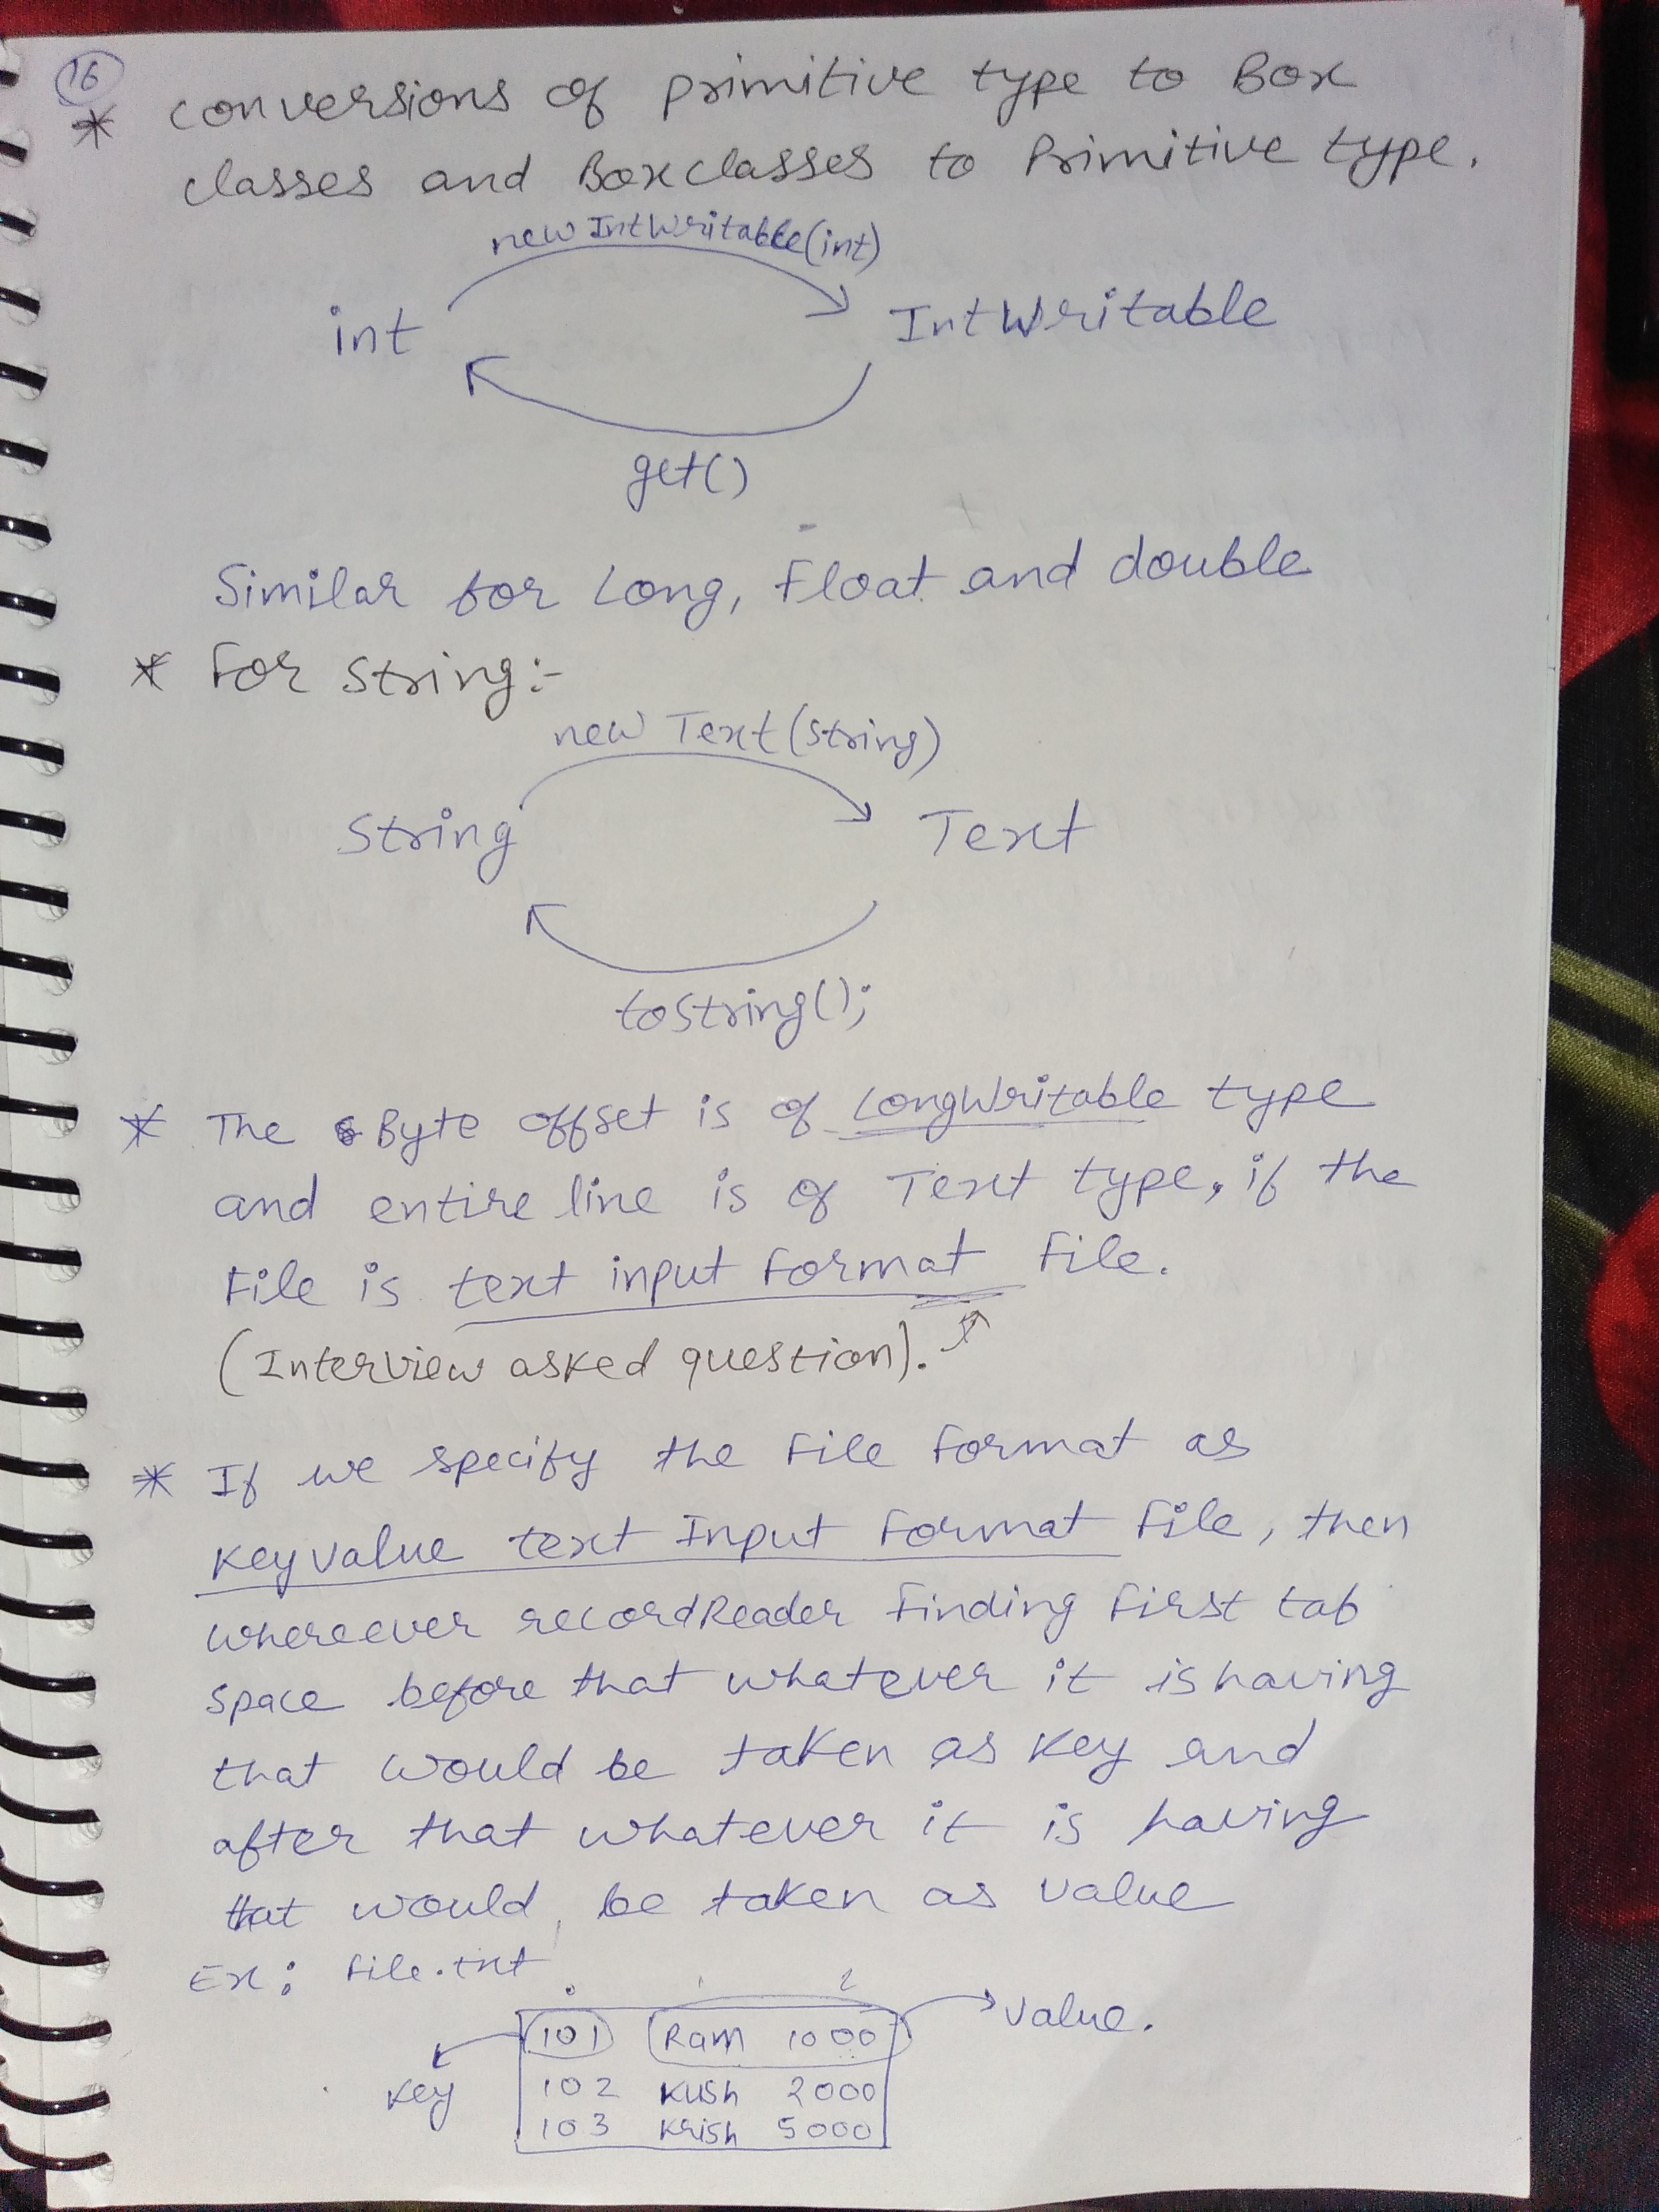 16
* conversions of primitive type to Box
classes and Boxclasses to Primitive type.
new IntWritable(int)
int IntWritable
get()
Similar for Long, Float and double
* For String:-
new Text(String)
String Text
toString();
* The Byte offset is of LongWritable type
and entire line is of Text type, if the
File is text input Format File.
(Interview asked question).
* If we specify the File Format as
keyvalue text Input Format File, then
whereever recordReader Finding First tab
space before that whatever it is having
that would be taken as key and
after that whatever it is having
that would be taken as value
Ex: File.txt
0 1 2
101 Ram 1000 value.
key 102 Kush 2000
103 Krish 5000